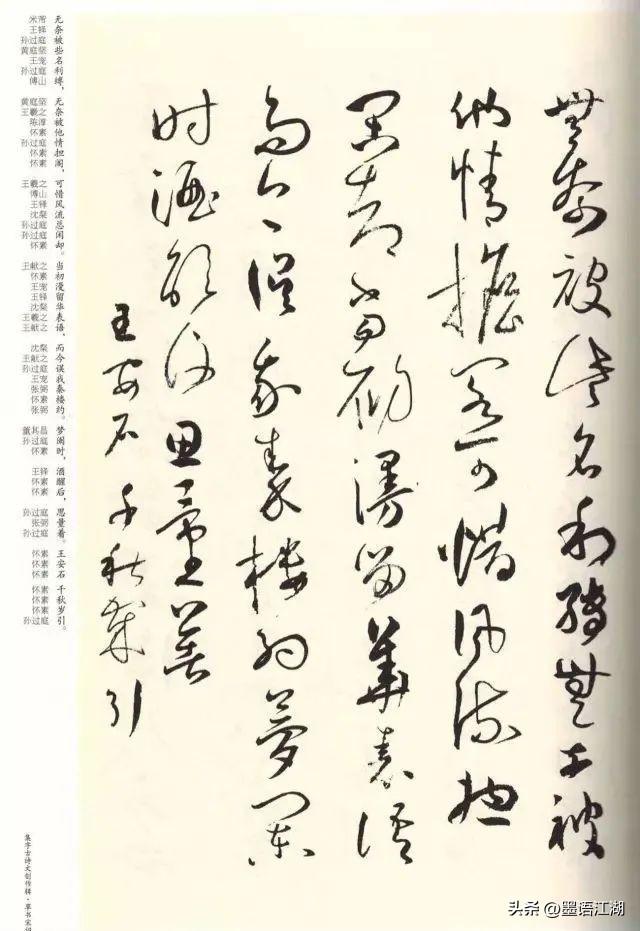 無奈被些名利縛無奈被
他情擔閣可惜風流總
閑却當初漫留華表語
而今誤我秦樓約夢闌
時酒醒後思量著
王安石千秋歲引
无奈被些名利缚，
无奈被他情担阁，
可惜风流总闲却。
当初漫留华表语，
而今误我秦楼约。
梦阑时，
酒醒后，
思量着。
王安石
千秋岁引。
米芾
王铎
孙过庭
黄庭坚
王宠
孙过庭
傅山
黄庭坚
王羲之
陈淳
怀素
孙过庭
怀素
怀素
王羲之
傅山
王铎
沈粲
孙过庭
孙过庭
怀素
王献之
怀素
王宠
王铎
沈粲
王羲之
王献之
沈粲
王献之
孙过庭
王宠
张弼
怀素
张弼
董其昌
孙过庭
怀素
王铎
怀素
怀素
孙过庭
张弼
孙过庭
怀素
怀素
怀素
怀素
怀素
怀素
孙过庭
集字古诗文创作辑·草书宋词
头条 @墨语江湖